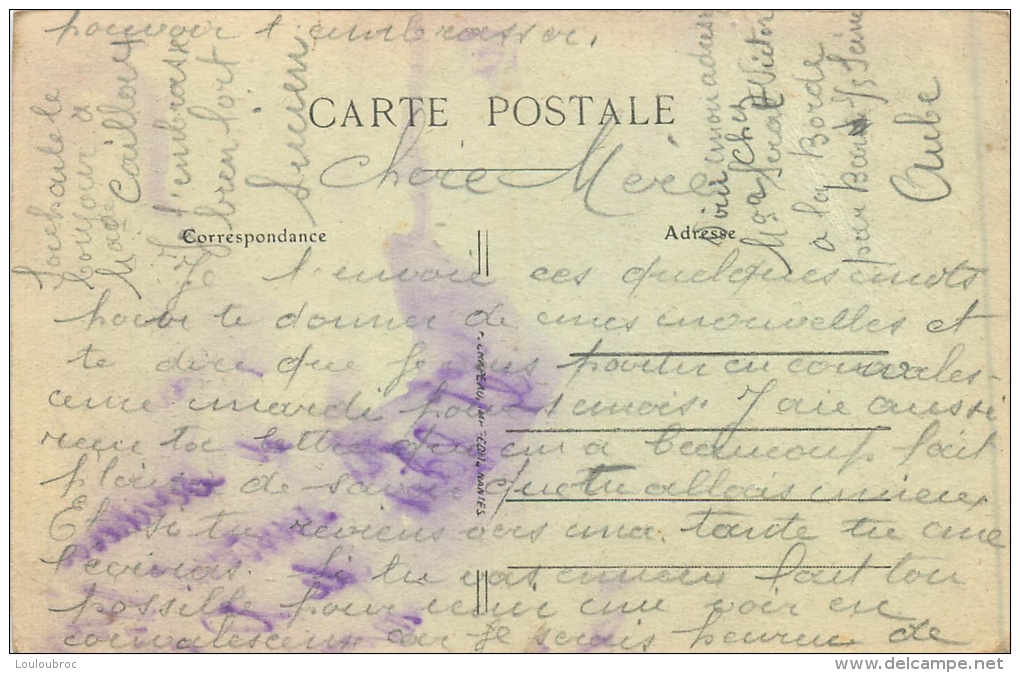 CARTE POSTALE
Correspondance
Adresse
Chère Mère
Je t'envoie ces quelques mots
pour te donner de mes nouvelles et
te dire que je vais partir en convales-
cence mardi pour 1 mois. J'aie aussi
recu ta lettre qui m'a beaucoup fait
plaisir de savoir que tu allais mieux.
Et si tu reviens vers ma tante tu me
l'ecriras. Si tu vas mieux fait ton
possible pour venir me voir en
convalescence car je serais heureux de
pouvoir t'embrasser.
Souhaite le
bonjour a
Made Caillout
Je t'embrasse
bien fort
Lucien
Voici mon adresse
chez
Mr Victor
a la Borde
par Bar s/ Seine
Aube
NANTES
Louloubroc
www.delcampe.net